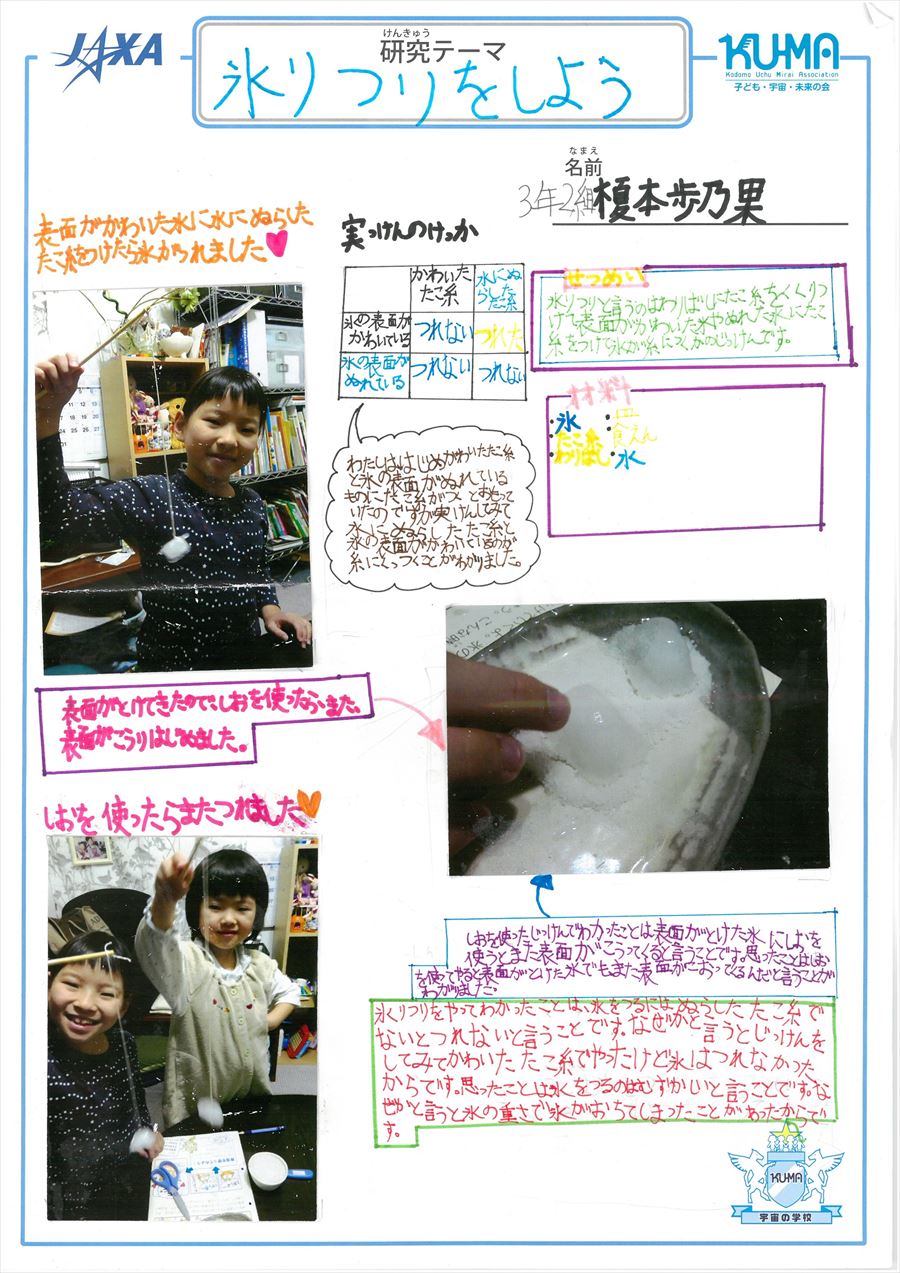 JAXA
けんきゅう
研究テーマ
氷りつりをしよう
KU-MA
Kodomo Uchu Mirai Association
子ども・宇宙・未来の会
なまえ
名前
3年2組 榎本歩乃果
表面がかわいた氷に水にぬらした
たこ糸をつけたら氷がつれました
実っけんのけっか
かわいた
たこ糸
水にぬ
らした
たこ糸
氷の表面が
かわいている
つれない
つれた
氷の表面が
ぬれている
つれない
つれない
せつめい
氷りつりと言うのはわりばしにたこ糸をくくりつ
けて表面がかわいた氷やぬれた氷にたこ
糸をつけて氷が糸につくかのじっけんです。
材料
・氷 ・皿
・たこ糸 ・食えん
・わりばし ・水
わたしははじめかわいたたこ糸
と氷の表面がぬれている
ものにたこ糸がつくとおもって
いたのですが実けんしてみて
水にぬらしたたこ糸と
氷の表面がかわいているのが
糸にくっつくことがわかりました。
表面がとけてきたので、しおを使ったら、また、
表面がこうりはじめました。
しおを使ったらまたつれました
しおを使ったじっけんでわかったことは表面がとけた氷にしおを
使うとまた表面がこうってくると言うことです。思ったことはしお
を使ってやると表面がとけた氷でもまた表面がこおってくるんだと言うことが
わかりました。
氷りつりをやってわかったことは、氷をつるにはぬらしたたこ糸で
ないとつれないと言うことです。なぜかと言うとじっけんを
してみてかわいたたこ糸でやったけど氷はつれなかった
からです。思ったことは氷をつるのはむずかしいと言うことです。な
ぜかと言うと氷の重さで氷がおちてしまったことがあったからで
す。
KU-MA
宇宙の学校